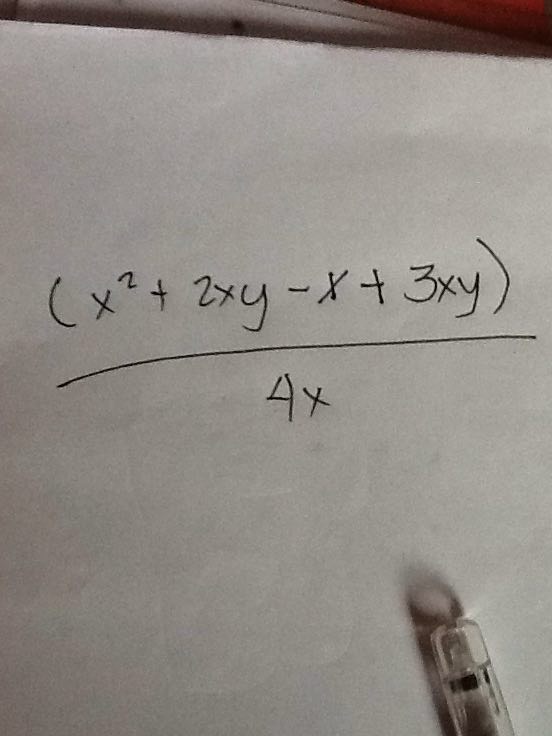 (x² + 2xy - x + 3xy)
4x